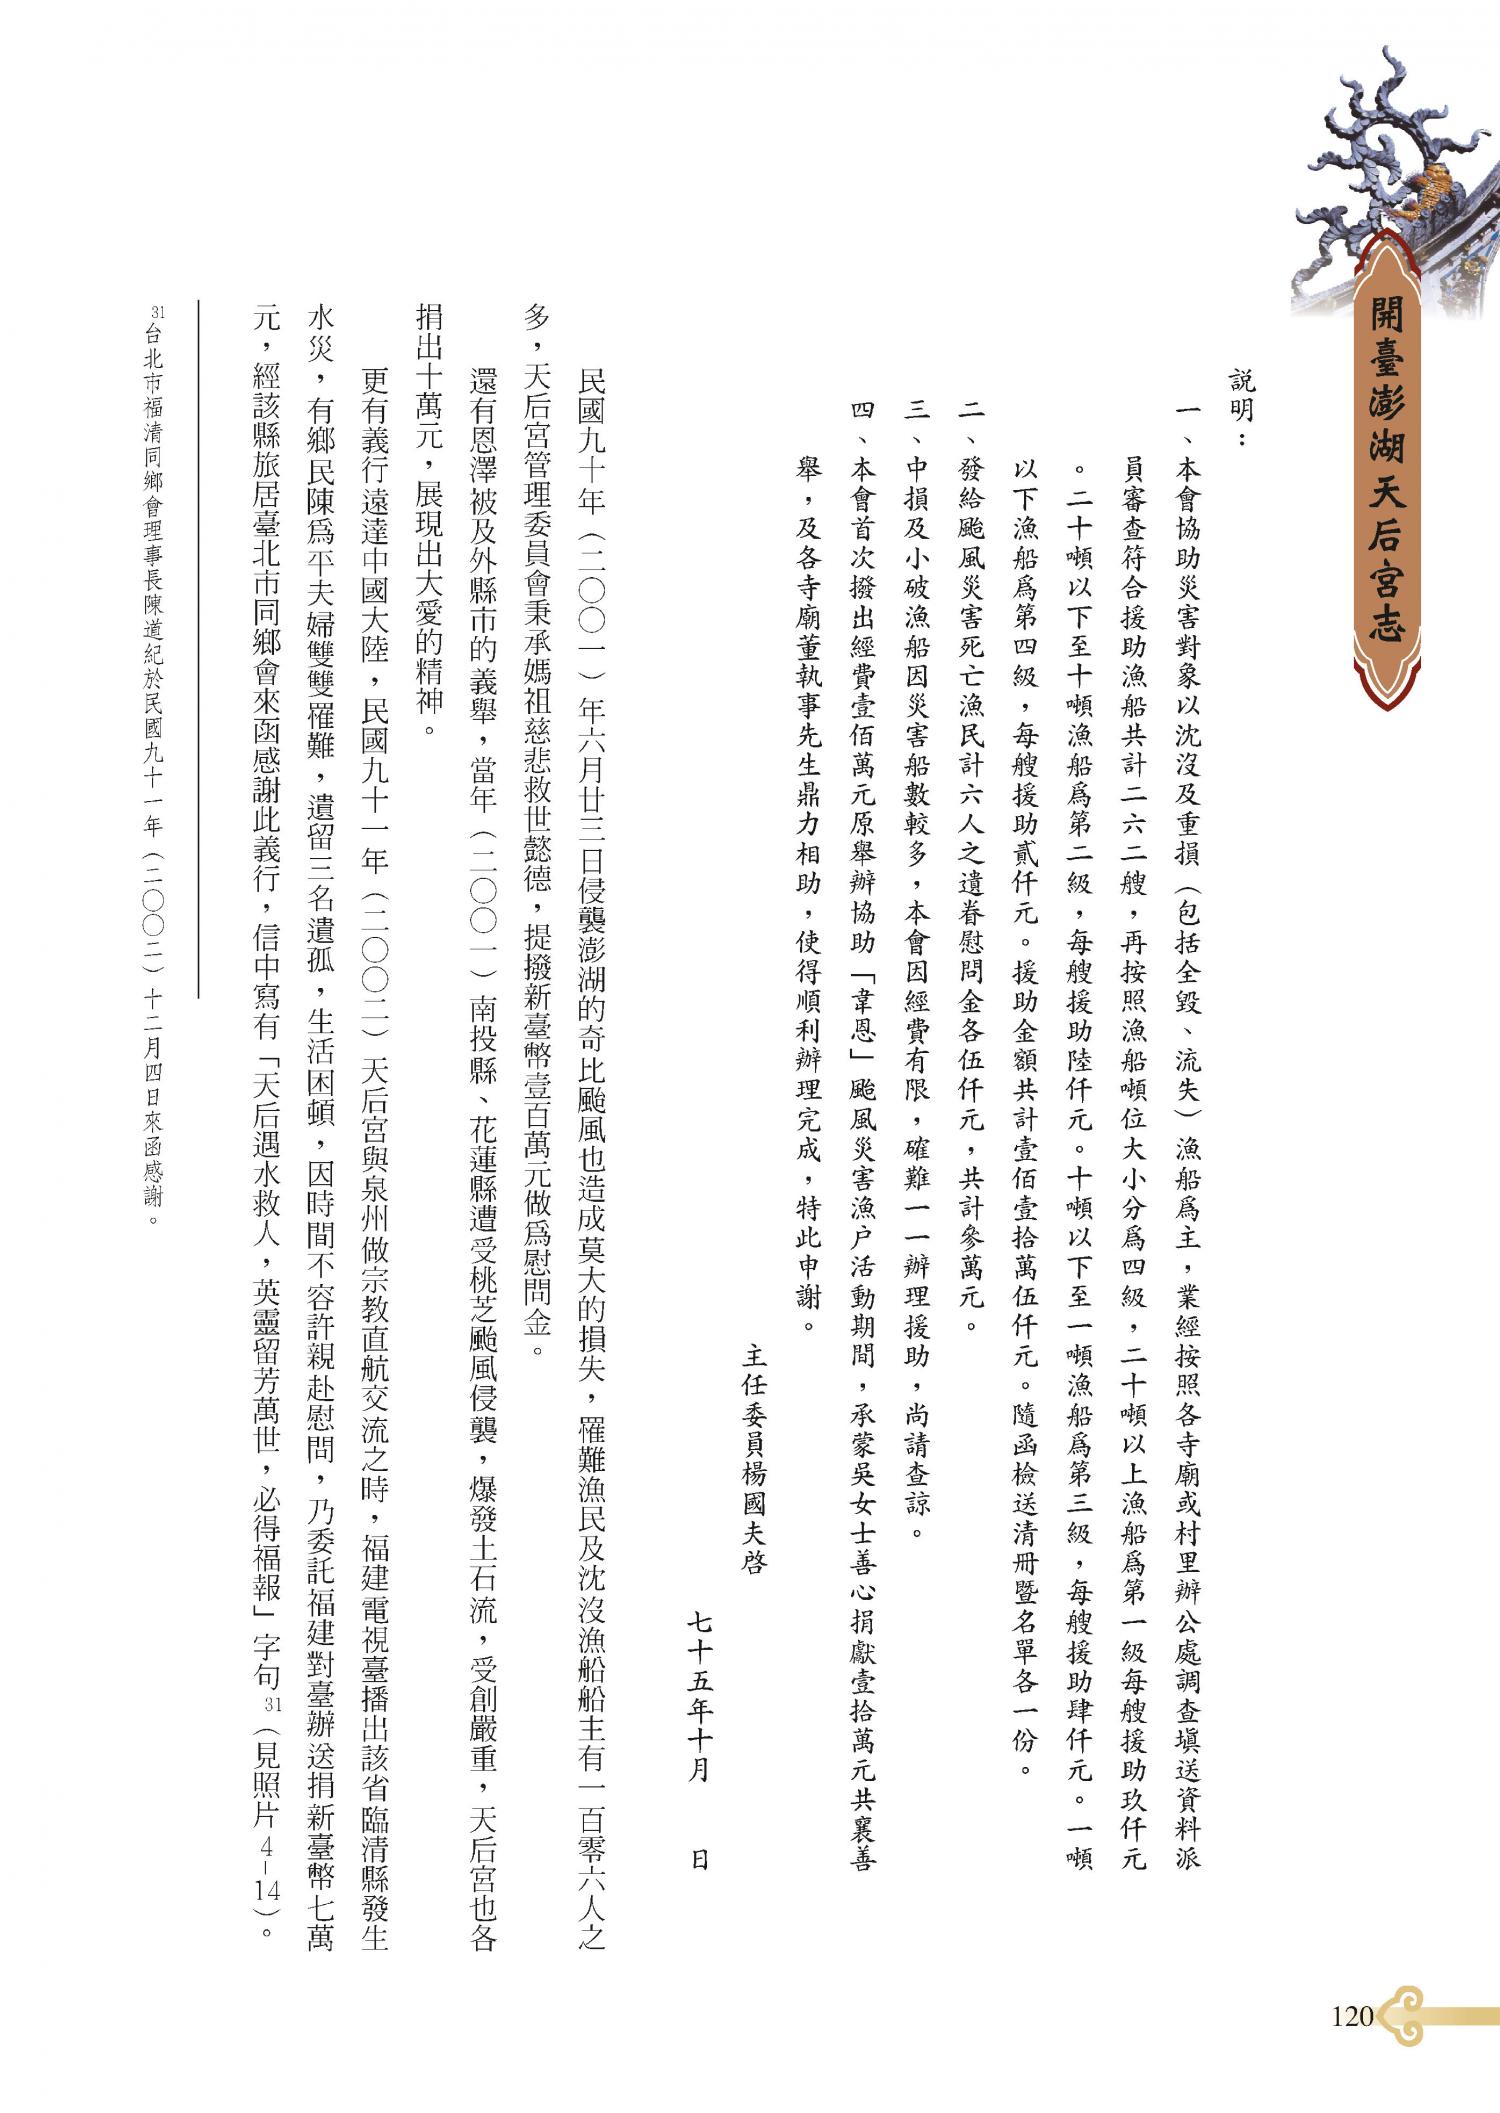 開臺澎湖天后宮志
説明：
一、本會協助災害對象以沈沒及重損（包括全毀、流失）漁船爲主，業經按照各寺廟或村里辦公處調查填送資料派
員審查符合援助漁船共計二六二艘，再按照漁船噸位大小分爲四級，二十噸以上漁船爲第一級每艘援助玖仟元
。二十噸以下至十噸漁船爲第二級，每艘援助陸仟元。十噸以下至一噸漁船爲第三級，每艘援助肆仟元。一噸
以下漁船爲第四級，每艘援助貳仟元。援助金額共計壹佰壹拾萬伍仟元。隨函檢送清冊暨名單各一份。
二、發給颱風災害死亡漁民計六人之遺眷慰問金各伍仟元，共計參萬元。
三、中損及小破漁船因災害船數較多，本會因經費有限，確難一一辦理援助，尚請查諒。
四、本會首次撥出經費壹佰萬元原舉辦協助「韋恩」颱風災害漁户活動期間，承蒙吳女士善心捐獻壹拾萬元共襄善
舉，及各寺廟董執事先生鼎力相助，使得順利辦理完成，特此申謝。
主任委員楊國夫啓
七十五年十月　　日
民國九十年（二〇〇一）年六月廿三日侵襲澎湖的奇比颱風也造成莫大的損失，罹難漁民及沈沒漁船船主有一百零六人之
多，天后宮管理委員會秉承媽祖慈悲救世懿德，提撥新臺幣壹百萬元做爲慰問金。
還有恩澤被及外縣市的義舉，當年（二〇〇一）南投縣、花蓮縣遭受桃芝颱風侵襲，爆發土石流，受創嚴重，天后宮也各
捐出十萬元，展現出大愛的精神。
更有義行遠達中國大陸，民國九十一年（二〇〇二）天后宮與泉州做宗教直航交流之時，福建電視臺播出該省臨清縣發生
水災，有鄉民陳爲平夫婦雙雙罹難，遺留三名遺孤，生活困頓，因時間不容許親赴慰問，乃委託福建對臺辦送捐新臺幣七萬
元，經該縣旅居臺北市同鄉會來函感謝此義行，信中寫有「天后遇水救人，英靈留芳萬世，必得福報」字句31（見照片4-14）。
31台北市福清同鄉會理事長陳道紀於民國九十一年（二〇〇二）十二月四日來函感謝。
120